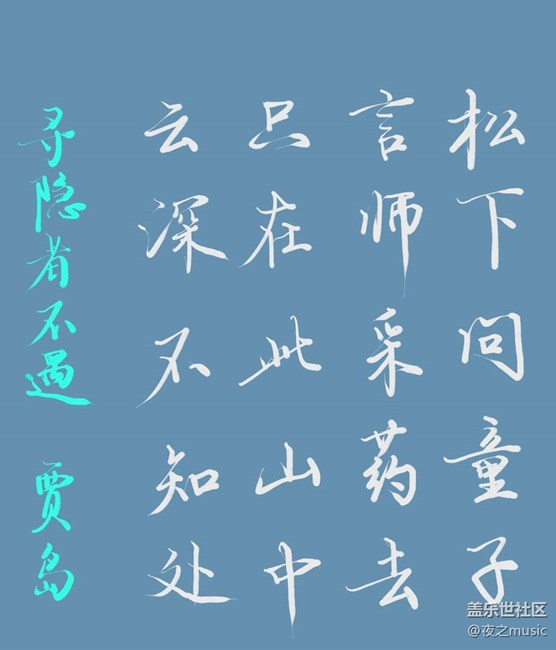 松下问童子
言师采药去
只在此山中
云深不知处
寻隐者不遇 贾岛
盖乐世社区
@夜之music